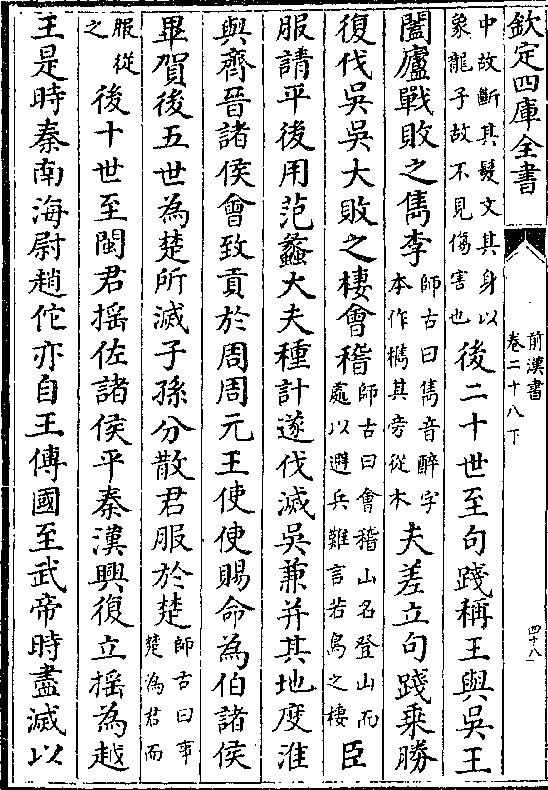 欽定四庫全書
前漢書
卷二十八下
四十八
中故斷其髮文其身以
象龍子故不見傷害也
後二十世至句踐稱王與吳王
闔廬戰敗之雋李
師古曰雋音醉字
本作檇其旁從木
夫差立句踐乗勝
復伐吳吳大敗之棲會稽
師古曰會稽山名登山而
處以避兵難言若鳥之棲
臣
服請平後用范蠡大夫種計遂伐滅吳兼并其地度淮
與齊晉諸侯會致貢於周周元王使使賜命為伯諸侯
畢賀後五世為楚所滅子孫分散君服於楚
師古曰事
楚為君而
服從
之
後十世至閩君摇佐諸侯平秦漢興復立摇為越
王是時秦南海尉趙佗亦自王傳國至武帝時盡滅以